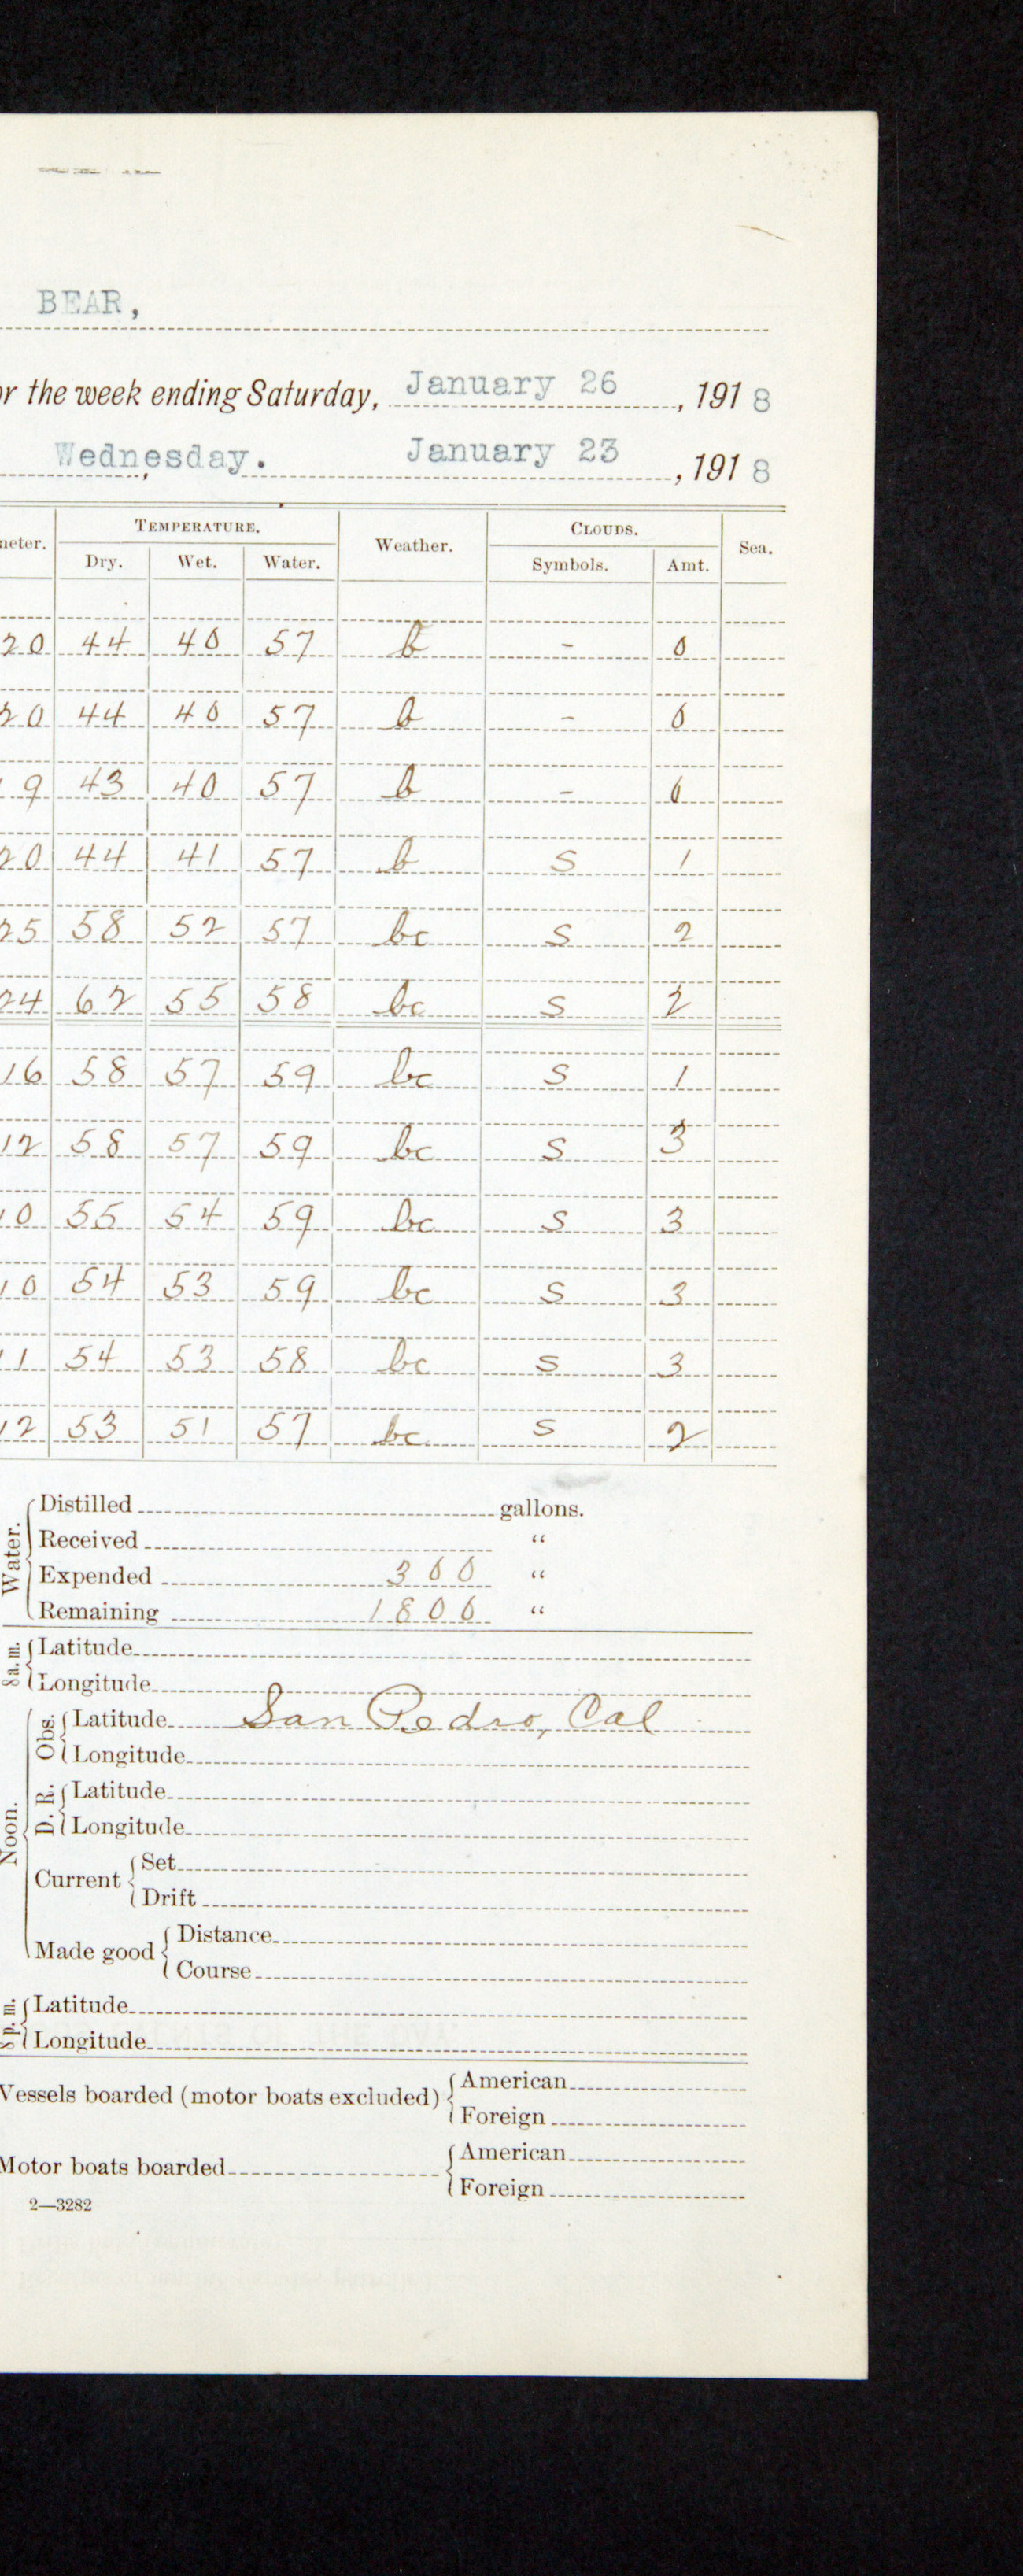 BEAR,
or the week ending Saturday, January 26, 1918
Wednesday. January 23, 1918
TEMPERATURE. CLOUDS.
neter. Dry. Wet. Water. Weather. Symbols. Amt. Sea.
20 44 40 57 b - 0
20 44 40 57 b - 0
19 43 40 57 b - 0
20 44 41 57 b S 1
25 58 52 57 bc S 2
24 62 55 58 bc S 2
16 58 57 59 bc S 1
12 58 57 59 bc S 3
10 55 54 59 bc S 3
10 54 53 59 bc S 3
11 54 53 58 bc S 3
12 53 51 57 bc S 2
Water.
Distilled gallons.
Received "
Expended 300 "
Remaining 1800 "
8 a.m. Latitude
Longitude
Noon. Obs. Latitude San Pedro, Cal
Longitude
D. R. Latitude
Longitude
Current Set
Drift
Made good Distance
Course
8 p.m. Latitude
Longitude
Vessels boarded (motor boats excluded) American
Foreign
Motor boats boarded American
Foreign
2—3282